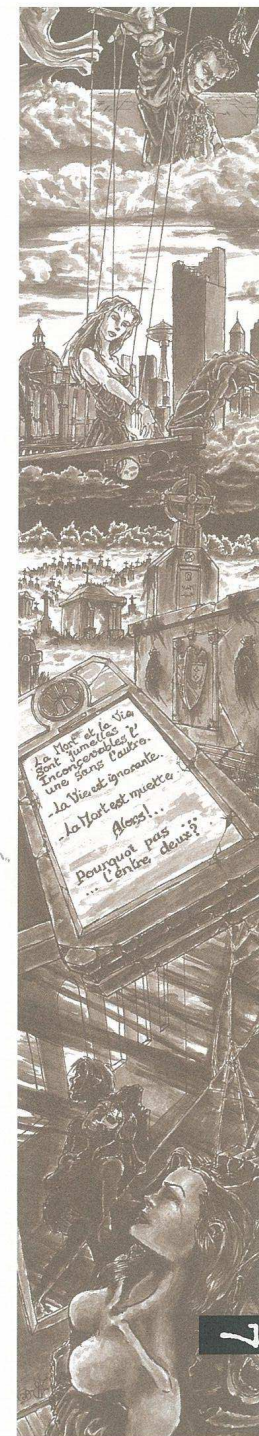 La Mort et la Vie
sont jumelles
Inconsevables l'
une sans l'autre.
La Vie est ignorante.
La Mort est muette
Alors!...
Pourquoi pas ...
... l'entre deux?